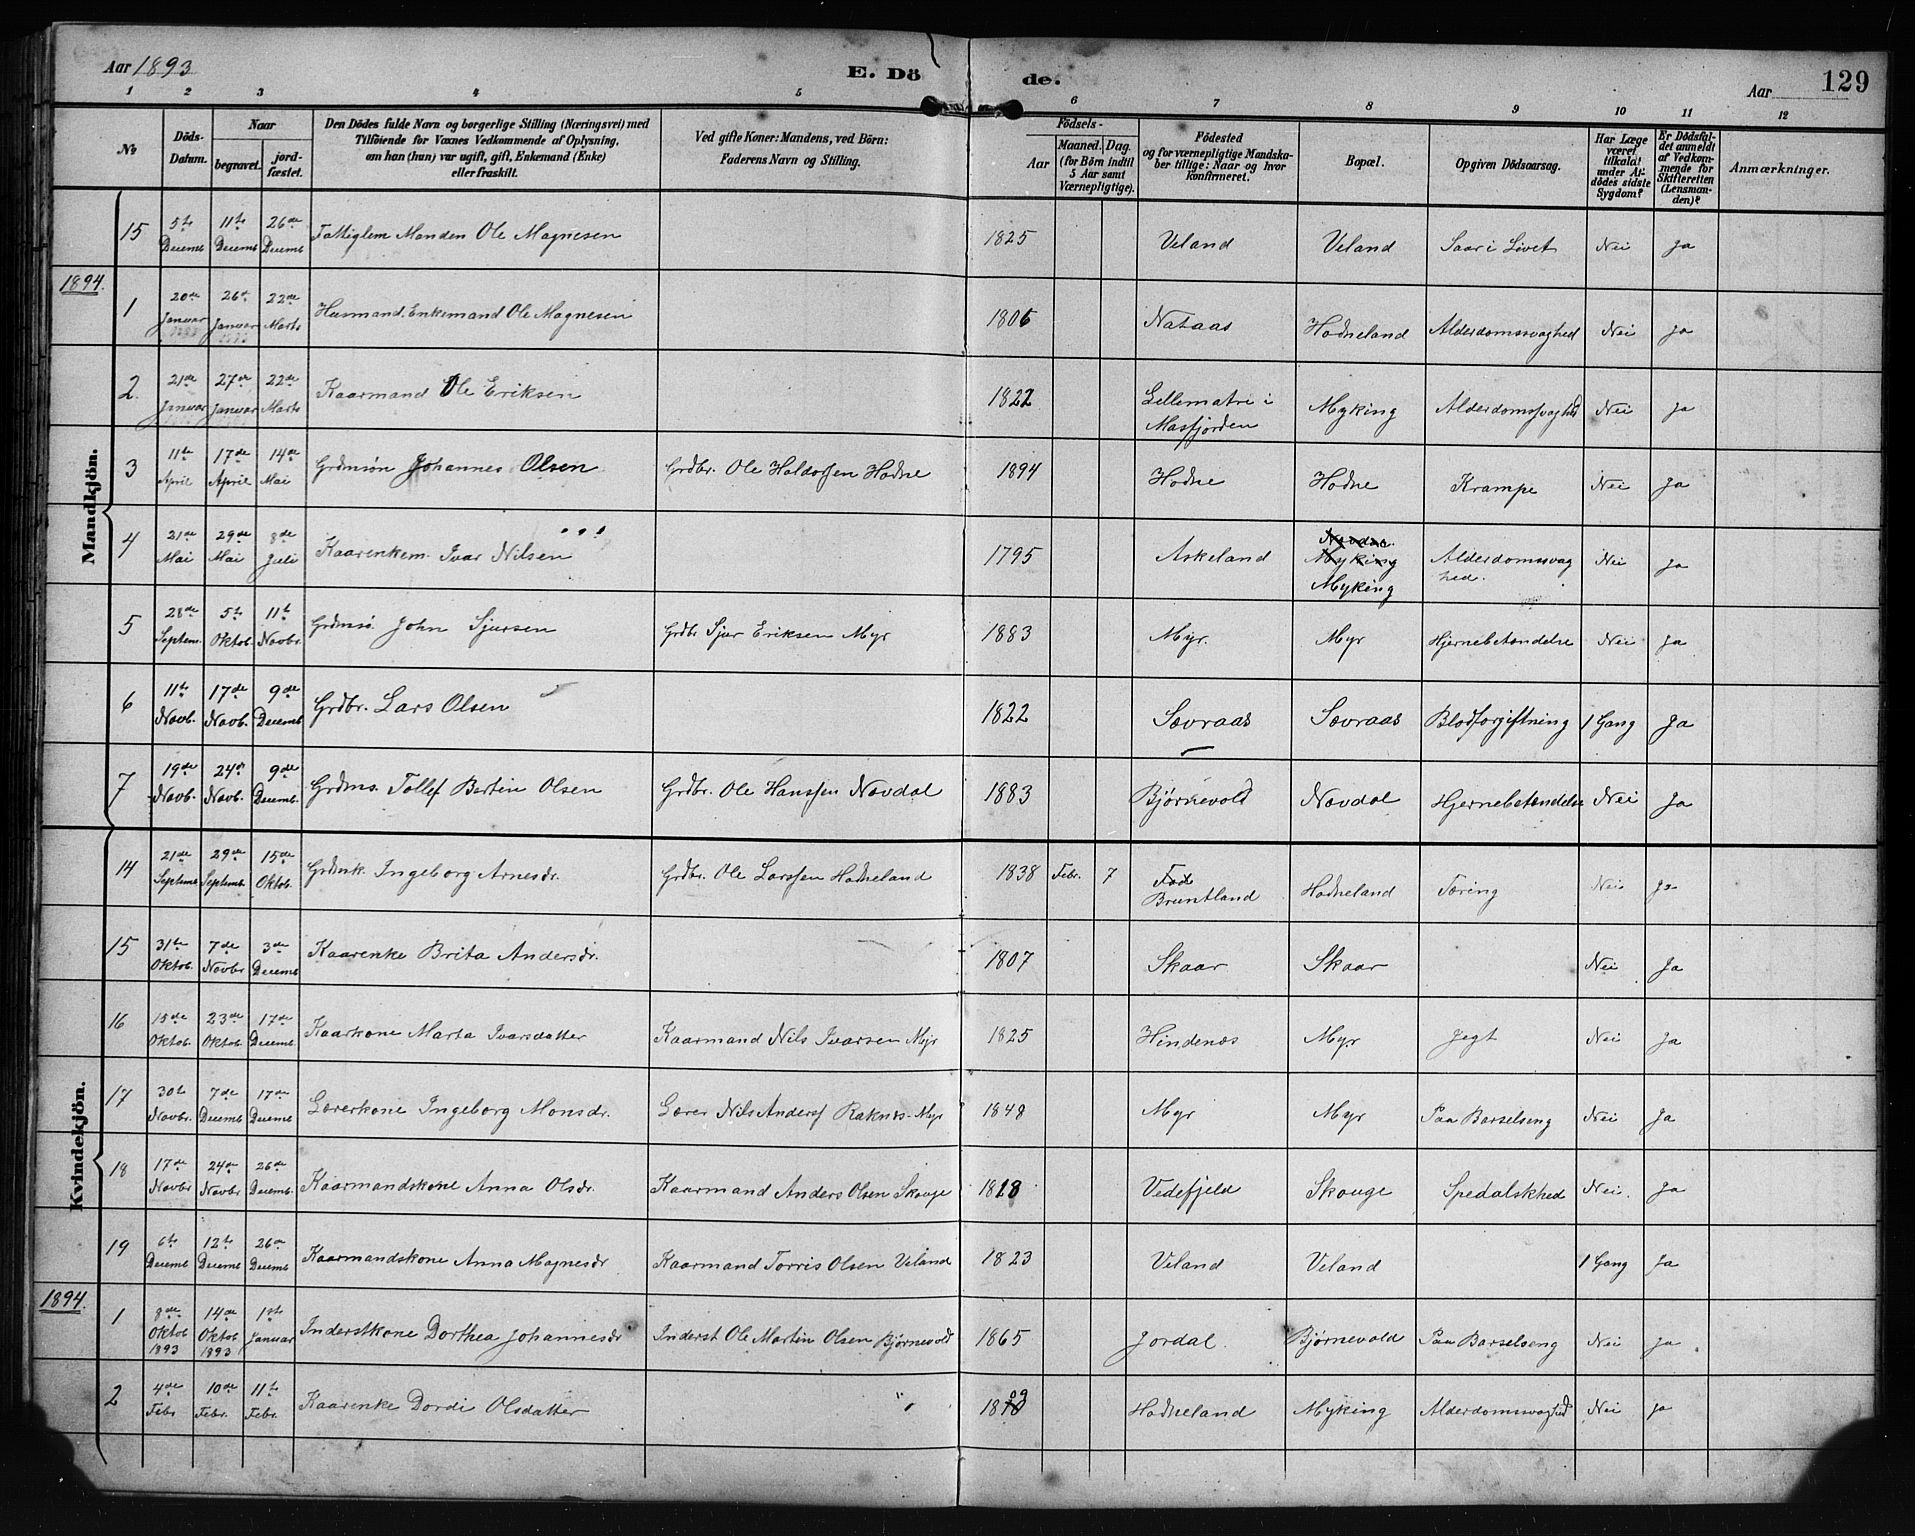 Aar 1893
E. Dö de.
Aar
129
1 2 3 4 5 6 7 8 9 10 11 12
No
Döds-Datum.
Naar
begravet.
jord-fæstet.
Den Dödes fulde Navn og borgerlige Stilling (Næringsvei) med
Tilföiende for Voxnes Vedkommende af Oplysning,
om han (hun) var ugift, gift, Enkemand (Enke)
eller fraskilt.
Ved gifte Koner: Mandens, ved Börn:
Faderens Navn og Stilling.
Födsels-
Aar
Maaned. Dag.
(for Börn indtil
5 Aar samt
Værnepligtige).
Födested
og for værnepligtige Mandska-
ber tillige: Naar og hvor
konfirmeret.
Bopæl.
Opgiven Dödsaarsag.
Har Læge
været
tilkaldt
under Af-
dödes sidste
Sygdom?
Er Dödsfal-
det anmeldt
af Vedkom-
mende for
Skifteretten
(Lensman-
den)?
Anmærkninger.
Mandkjön.
15 5te Decemb 11te Decemb 26de Decemb Fattiglem Manden Ole Magnesen 1825 Veland Veland Saar i Livet Nei Ja
1894.
1 20de Januar 26de Januar 22de Marts Husmand. Enkemand Ole Magnesen 1806 Nataas Hodneland Alderdomssvaghed Nei Ja
2. 21de Januar 27de Januar 22de Marts Kaarmand Ole Eriksen 1822 Lillematre i Masfjorden Myking Alderdomssvaghed Nei Ja
3 11te April 17de April 14de Mai Grdmsøn Johannes Olsen Grdbr. Ole Haldorsen Hodne 1894 Hodne Hodne Krampe Nei Ja
4 21de Mai 29de Mai 8de Juli Kaarenkem. Ivar Nilsen 1795 Askeland Myking Myking Alderdomssvaghed. Nei Ja
5 28de Septem. 5te Oktob. 11te Novbr. Grdmsø. John Sjursen Grdbr Sjur Eriksen Myr 1883 Myr. Myr Hjernebetændelse Nei Ja
6 11te Novb. 17de Novb. 9de Decemb Grdbr. Lars Olsen 1822 Sævraas Sævraas Blodforgiftning 1 Gang Ja
7 19de Novb. 24de Novb. 9de Decemb. Grdms. Tollef Bertin Olsen Grdbr. Ole Hanssen Novdal 1883 Bjørnevold Novdal Hjernebetændelse Nei Ja
Kvindekjön.
14 21de Septemb 29de Septemb. 15de Oktob. Grdmk. Ingeborg Arnesdr. Grdbr. Ole Larssen Hodneland 1838 Febr. 7 Bruntland Hodneland Tæring Nei Ja
15 31te Oktob. 7de Novbr 3de Decemb Kaarenke Brita Andersdr. 1807 Skaar Skaar Nei Ja
16 15de Oktob. 23de Oktob. 17de Decemb. Kaarkone Marta Ivarsdatter Kaarmand Nils Ivarsen Myr 1825 Hindenes Myr Jegt Nei Ja
17 30te Novbr. 7de Decemb 17de Decemb Lærerkone Ingeborg Monsdr. Lærer Nils Anders Raknes-Myr 1848 Myr Myr Paa Barselseng Nei Ja
18 17de Novbr 24de Novbr 26de Decemb. Kaarmandskone Anna Olsdr. Kaarmand Anders Olsen Skouge 1828 Vedefjeld Skouge Spedalskhed Nei. Ja
19 6te Decemb 12te Decemb 26de Decemb Kaarmandskone Anna Magnesdr Kaarmand Torris Olsen Veland 1823 Veland Veland 1 Gang Ja
1894.
1 8de Oktob 1893 14de Oktob 1893 1ste Januar Inderstkone Dorthea Johannesdr Inderst Ole Martin Olsen Bjørnevold 1865 Jordal. Bjørnevold Paa Barselseng Nei Ja
2 4de Febr 10de Febr. 11te Febr. Kaarenke Dordi Olsdatter " 1809 Hodneland Myking Alderdomssvaghed Nei Ja